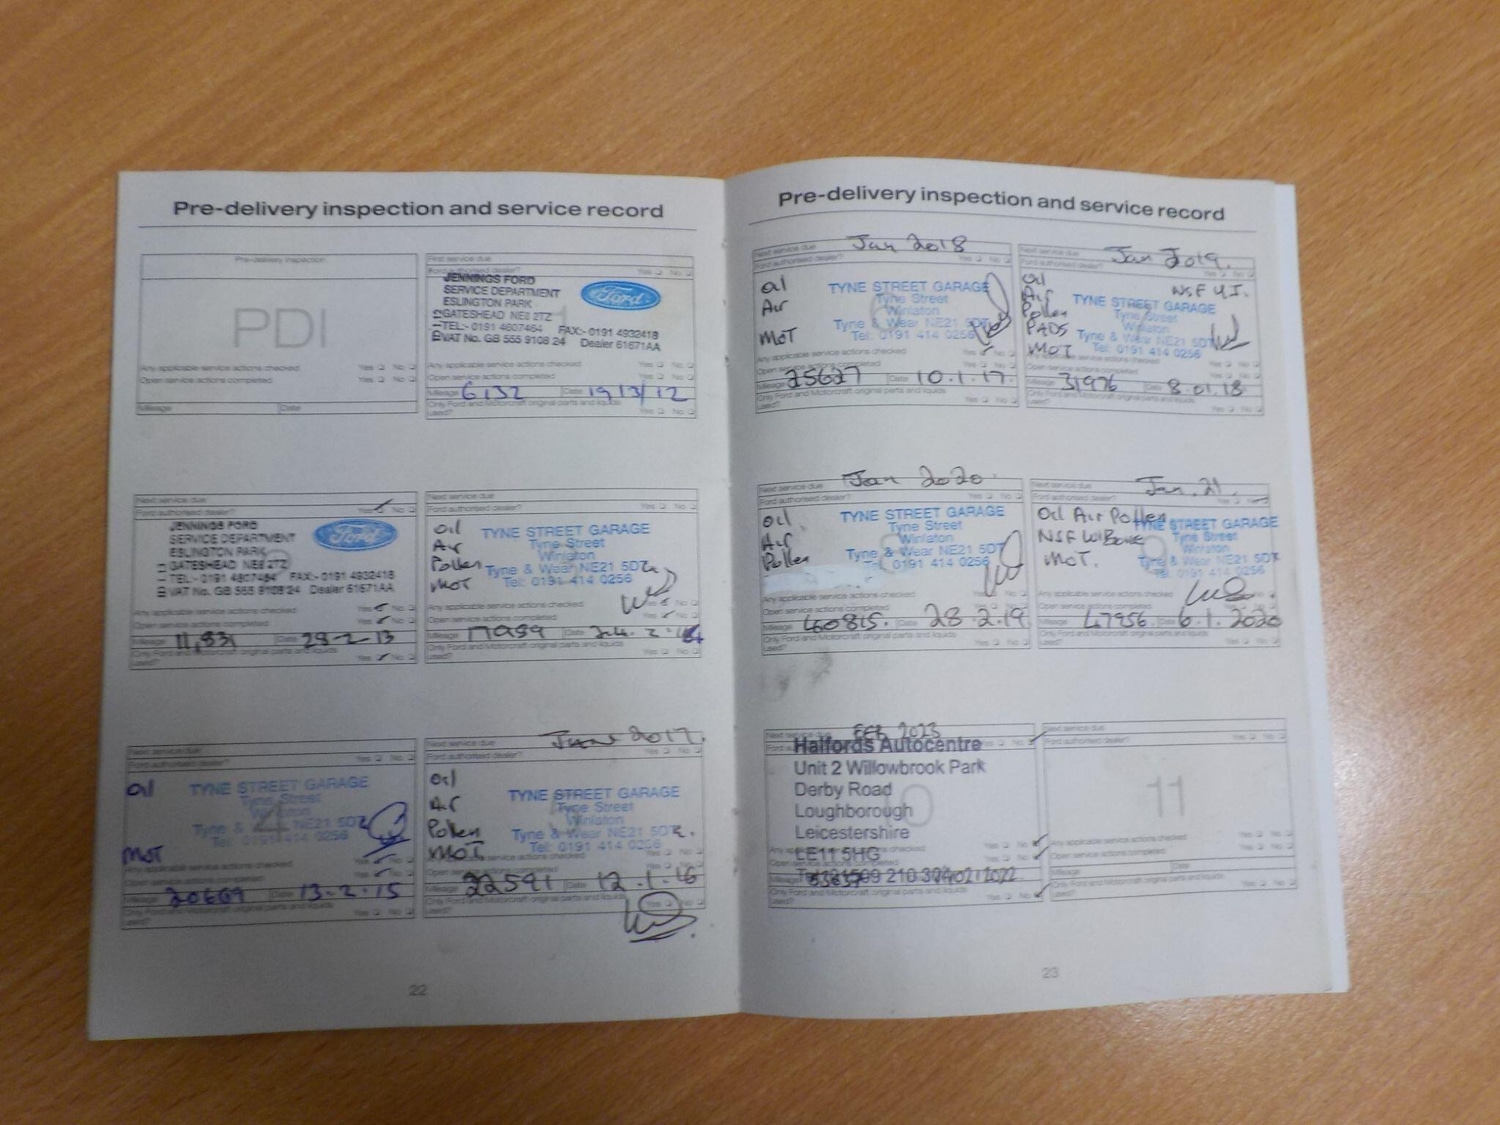 Pre-delivery inspection and service record
Pre-delivery inspection
PDI
Any applicable service actions checked Yes No
Open service actions completed Yes No
Mileage Date
First service due
Ford authorised dealer? Yes No
JENNINGS FORD
SERVICE DEPARTMENT
ESLINGTON PARK
GATESHEAD NE8 2TZ
TEL:- 0191 4607464 FAX:- 0191 4932418
VAT No. GB 555 9108 24 Dealer 61671AA
Ford
Any applicable service actions checked Yes No
Open service actions completed Yes No
Mileage 6132 Date 19/3/12
Only Ford and Motorcraft original parts and liquids
used? Yes No
Next service due
Ford authorised dealer? Yes No
JENNINGS FORD
SERVICE DEPARTMENT
ESLINGTON PARK
GATESHEAD NE8 2TZ
TEL:- 0191 4607464 FAX:- 0191 4932418
VAT No. GB 555 9108 24 Dealer 61671AA
Ford
Any applicable service actions checked Yes No
Open service actions completed Yes No
Mileage 11,831 Date 28-2-13
Only Ford and Motorcraft original parts and liquids
used? Yes No
Next service due
Ford authorised dealer? Yes No
Oil
Air
Pollen
MOT
TYNE STREET GARAGE
Tyne Street
Winlaton
Tyne & Wear NE21 5DZ
Tel: 0191 414 0256
Any applicable service actions checked Yes No
Open service actions completed Yes No
Mileage 17989 Date
Only Ford and Motorcraft original parts and liquids
used? Yes No
Next service due
Ford authorised dealer? Yes No
Oil
MOT
TYNE STREET GARAGE
Tyne Street
Winlaton
Tyne & Wear NE21 5DZ
Tel: 0191 414 0256
4
Any applicable service actions checked Yes No
Open service actions completed Yes No
Mileage 20669 Date 13-2-15
Only Ford and Motorcraft original parts and liquids
used? Yes No
Next service due 2017.
Ford authorised dealer? Yes No
Oil
Air
Pollen
MOT
TYNE STREET GARAGE
Tyne Street
Winlaton
Tyne & Wear NE21 5DZ
Tel: 0191 414 0256
service actions checked Yes No
Open service actions completed Yes No
Mileage 22591 Date 12.1.16
Only Ford and Motorcraft original parts and liquids
used? Yes No
22
Pre-delivery inspection and service record
Next service due Jan 2018
Ford authorised dealer? Yes No
Oil
Air
MOT
TYNE STREET GARAGE
Tyne Street
Winlaton
Tyne & Wear NE21 5DZ
Tel: 0191 414 0256
Any applicable service actions checked Yes No
Open service actions completed Yes No
Mileage 25627 Date 10.1.17.
Only Ford and Motorcraft original parts and liquids
used? Yes No
Next service due Jan 2019.
Ford authorised dealer? Yes No
Oil
Air
Pollen
PADS
MOT
NSF
TYNE STREET GARAGE
Tyne Street
Winlaton
Tyne & Wear NE21 5DZ
Tel: 0191 414 0256
Any applicable service actions checked
Open service actions completed Yes No
Mileage 31976 Date 8.01.18
Only Ford and Motorcraft original parts and liquids
used? Yes No
Next service due Jan 2020.
Ford authorised dealer? Yes No
Oil
Air
Pollen
TYNE STREET GARAGE
Tyne Street
Winlaton
Tyne & Wear NE21 5DZ
Tel: 0191 414 0256
Any applicable service actions checked Yes No
Open service actions completed Yes No
Mileage 40815. Date 28.2.19
Only Ford and Motorcraft original parts and liquids
used? Yes No
Next service due Jan. 21.
Ford authorised dealer? Yes No
Oil Air Pollen
NSF W/Bone
MOT.
TYNE STREET GARAGE
Tyne Street
Winlaton
Tyne & Wear NE21 5DZ
Tel: 0191 414 0256
Any applicable service actions checked
Open service actions completed
Mileage 47956. 6.1.2020
Only Ford and Motorcraft original parts and liquids
used? Yes No
Next service due FEB 2023
Halfords Autocentre
Unit 2 Willowbrook Park
Derby Road
Loughborough
Leicestershire
LE11 5HG
10
Only Ford and Motorcraft original parts and liquids
used? Yes No
Next service due
Ford authorised dealer? Yes No
11
Any applicable service actions checked Yes No
Open service actions completed Yes No
Mileage Date
Only Ford and Motorcraft original parts and liquids
used? Yes No
23